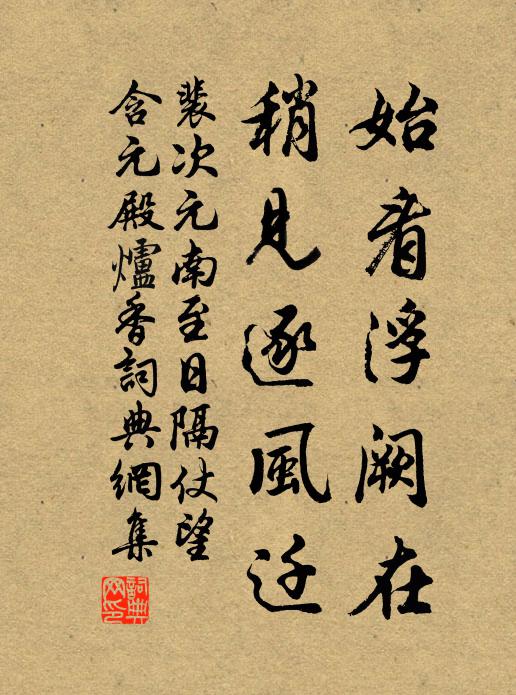 始看浮阙在
稍見逐風迁
裴次元南至日隔仗望
含元殿爐香詞典網集
詞典网印